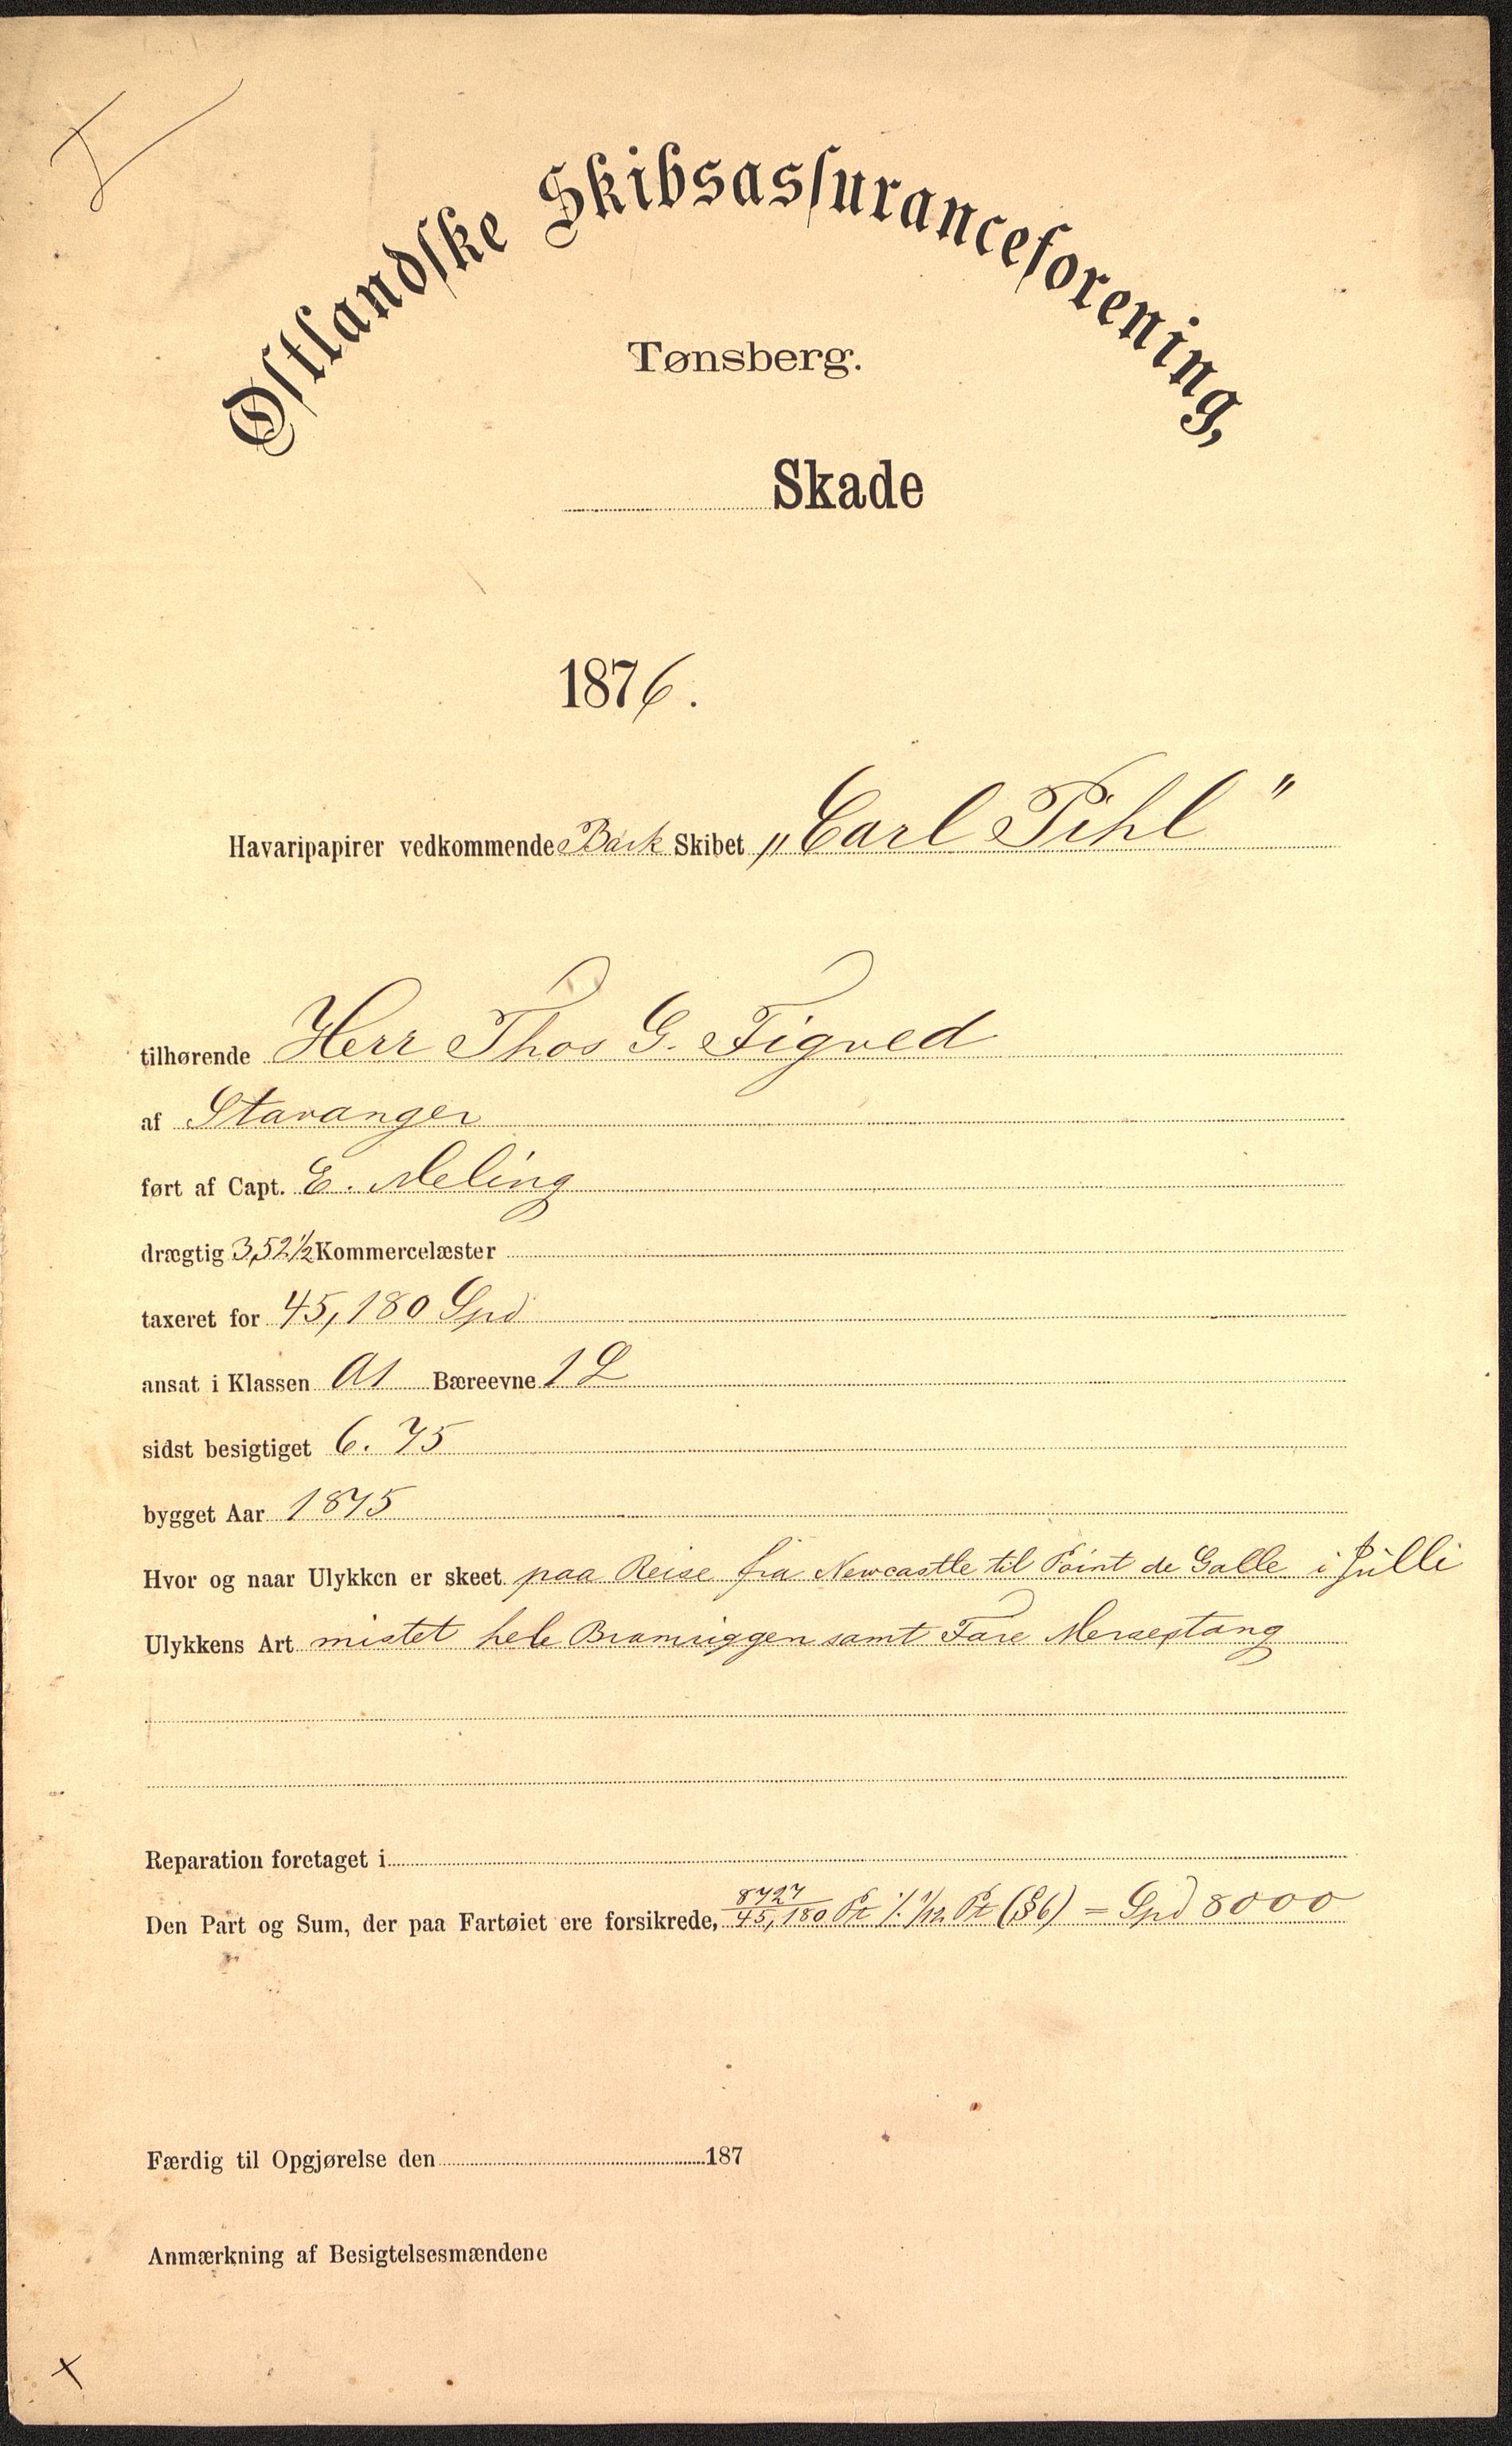 Østlandske Skibsassuranceforening,
Tønsberg.
Skade
1876.
Havaripapirer vedkommende Bark Skibet „Carl Pihl"
tilhørende Herr Thos G. Figved
af Stavanger
ført af Capt. E. Meling
drægtig 352½ Kommercelæster
taxeret for 45,180 Spd
ansat i Klassen A1 Bæreevne 1 L
sidst besigtiget 6. 75
bygget Aar 1875
Hvor og naar Ulykken er skeet paa Reise fra Newcastle til Point de Galle i Julli
Ulykkens Art mistet hele Bramriggen samt Fore Mersestang
Reparation foretaget i
Den Part og Sum, der paa Fartøiet ere forsikrede, 8727/45,180 Pt ./. 1/12 Pt (§6) = Spd 8000
Færdig til Opgjørelse den 187
Anmærkning af Besigtelsesmændene
x